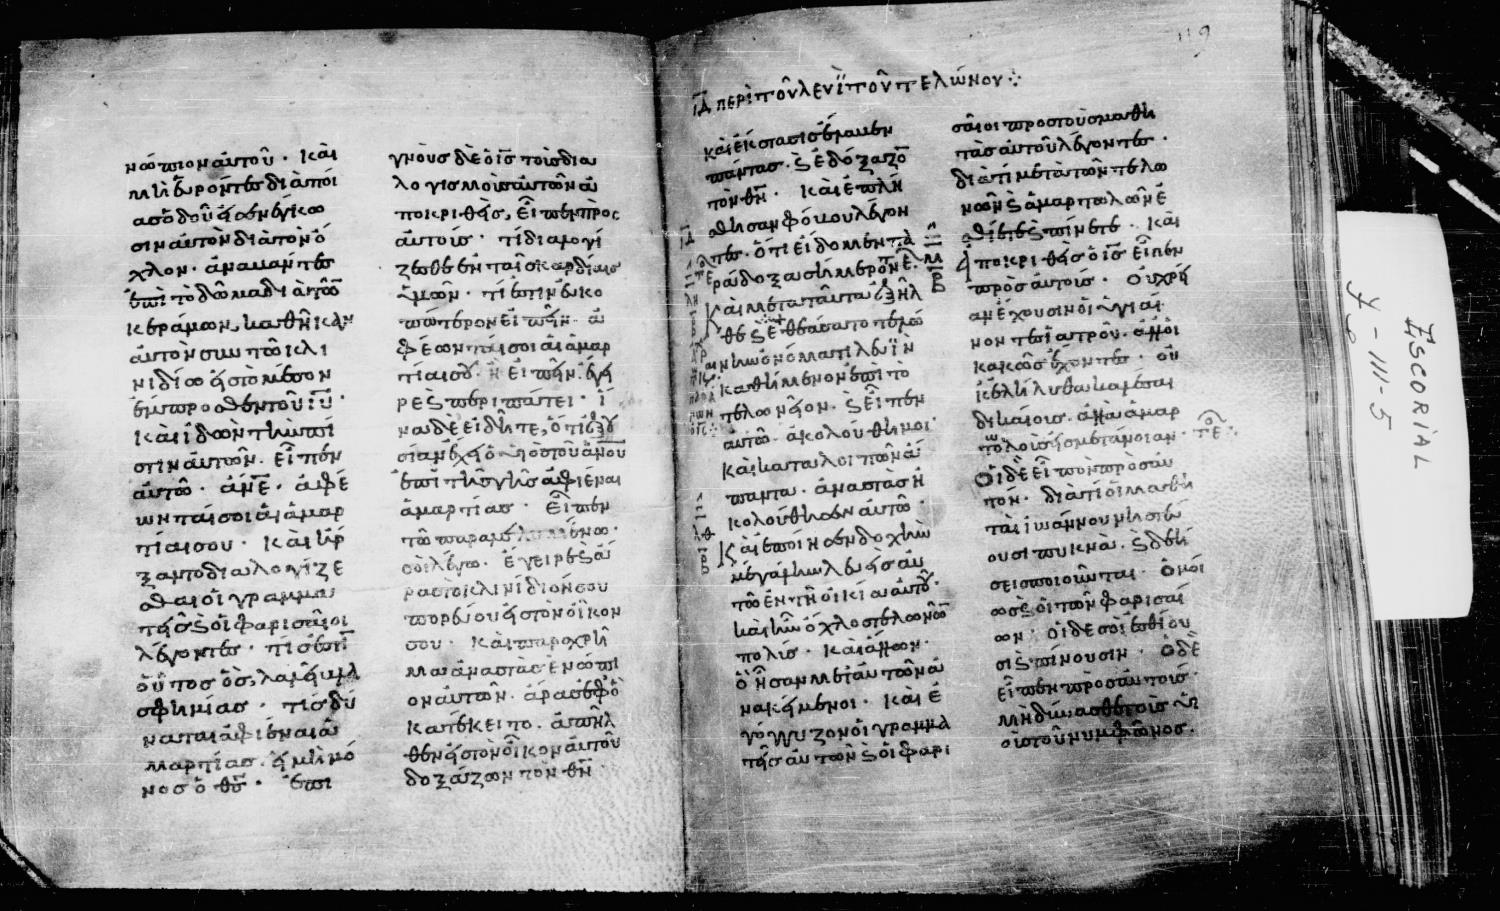 νώπιον αυτοῦ · Καὶ
μὴ εὑρόντες διὰ ποί
ασ ὁδοῦ εἰσενέγκω
σιν αὐτὸν διὰ τὸν ὄ
χλον · ἀναβάντες
ἐπὶ τὸ δῶμα διὰ τῶ
κεράμων, καθῆκαν
αὐτὸν συν τῶ κλι
νιδίω εἰσ τὸ μέσον
ἔμπροσθεν τοῦ ἰῦ ·
Καὶ ἰδὼν τὴν πί
στιν αὐτῶν · εἶπεν
αὐτῶ · ἄνε · ἀφέ
ωνταί σοι αἱ ἁμαρ
τίαι σου · Καὶ ἤρ
ξαντο διαλογίζε
σθαι οἱ γραμμα
τεῖσ ϗ οἱ φαρισαῖοι
λέγοντεσ · τίσ ἐστὶ
οὗτοσ ὃσ λαλεῖ βλα
σφημίασ · τίσ δύ
ναται ἀφιέναι ἁ
μαρτίασ · εἰ μὴ μό
νοσ ὁ θσ · Ἐπι
γνοὺσ δὲ ὁ ισ τοὺσ δια
λογισμοὺσ αὐτῶν ἀ
ποκριθεὶσ, εἶπεν πρὸσ
αὐτούσ · τί διαλογί
ζεσθε ἐν ταῖσ καρδίαισ
ὑμῶν · τί ἐστὶν εὐκο
πώτερον εἰπεῖν · ἀ
φέωνταί σοι αἱ ἁμαρ
τίαι σου · ἢ εἰπεῖν · ἔγει
ρε ϗ περιπάτει · ἵ
να δὲ εἰδῆτε, ὅτι ἐξου
σίαν ἔχει ὁ υἱὸσ τοῦ ἀνου
ἐπὶ τῆσ γῆσ ἀφιέναι
ἁμαρτίασ · εἶπεν
τῶ παραλελυμένω ·
σοὶ λέγω · ἔγειρε ϗ ἄ
ρασ τὸ κλινίδιόν σου
πορεύου εἰσ τὸν οἶκον
σου · Καὶ παραχρῆ
μα ἀναστὰσ ἐνώπι
ον αὐτῶν · ἄρασ ἐφ ὃ
κατέκειτο · ἀπῆλ
θεν εἰσ τὸν οἶκον αὐτοῦ
δοξάζων τὸν θν ·
119
ΙΔ περὶ τοῦ λευῒ τοῦ τελώνου
καὶ ἔκστασισ ἔλαβεν
πάντασ · ϗ ἐδόξαζο
τὸν θν · Καὶ ἐπλή
σθησαν φόβου λέγον
τεσ · ὅτι εἴδομεν πα
ράδοξα σήμερον
Καὶ μετὰ ταῦτα ἐξῆλ
θε ϗ ἐθεάσατο τελώ
νην ὀνόματι λευῒν
καθήμενον ἐπὶ τὸ
τελώνιον · ϗ εἶπεν
αὐτῶ · ἀκολούθει μοι ·
Καὶ καταλιπὼν ἅ
παντα · ἀναστὰσ ἠ
κολούθησεν αὐτῶ ·
Καὶ ἐποίησεν δοχὴν
μεγάλην λευῒσ αὐ
τῶ ἐν τῆ οἰκία αὐτοῦ ·
καὶ ἦν ὄχλοσ τελωνῶν
πολύσ · Καὶ ἄλλων ·
οἳ ἦσαν μετ αὐτῶν ἀ
νακείμενοι · Καὶ ἐ
γόγγυζον οἱ γραμμα
τεῖσ αὐτῶν ϗ οἱ φαρι
σαῖοι πρὸσ τοὺσ μαθη
τὰσ αὐτοῦ λέγοντεσ ·
διατί μετὰ τῶν τελω
νῶν ϗ ἁμαρτωλῶν ἐ
σθίετε ϗ πίνετε · Καὶ
ἀποκριθεὶσ ὁ ισ εἶπεν
πρὸσ αὐτούσ · Οὐ χρεί
αν ἔχουσιν οἱ ὑγιαί
νοντεσ ἰατροῦ · ἀλλ οἱ
κακῶσ ἔχοντεσ · οὐ
κ ἐλήλυθα καλέσαι
δικαίουσ · ἀλλὰ ἁμαρ
τωλοὺσ εἰσ μετάνοιαν · τε
Οἱ δὲ εἶπον πρὸσ αὐ
τόν · διατί οἱ μαθη
ταὶ ἰωάννου νηστεύ
ουσι πυκνὰ · ϗ δεή
σεισ ποιοῦνται · ὁμοί
ωσ ϗ οἱ τῶν φαρισαί
ων · οἱ δὲ σοὶ ἐσθίου
σι ϗ πίνουσιν · ὁ δὲ
εἶπεν πρὸσ αὐτούσ ·
μὴ δύνασθε τοὺσ υἱ
οὺσ τοῦ νυμφῶνοσ ·
ESCORIAL